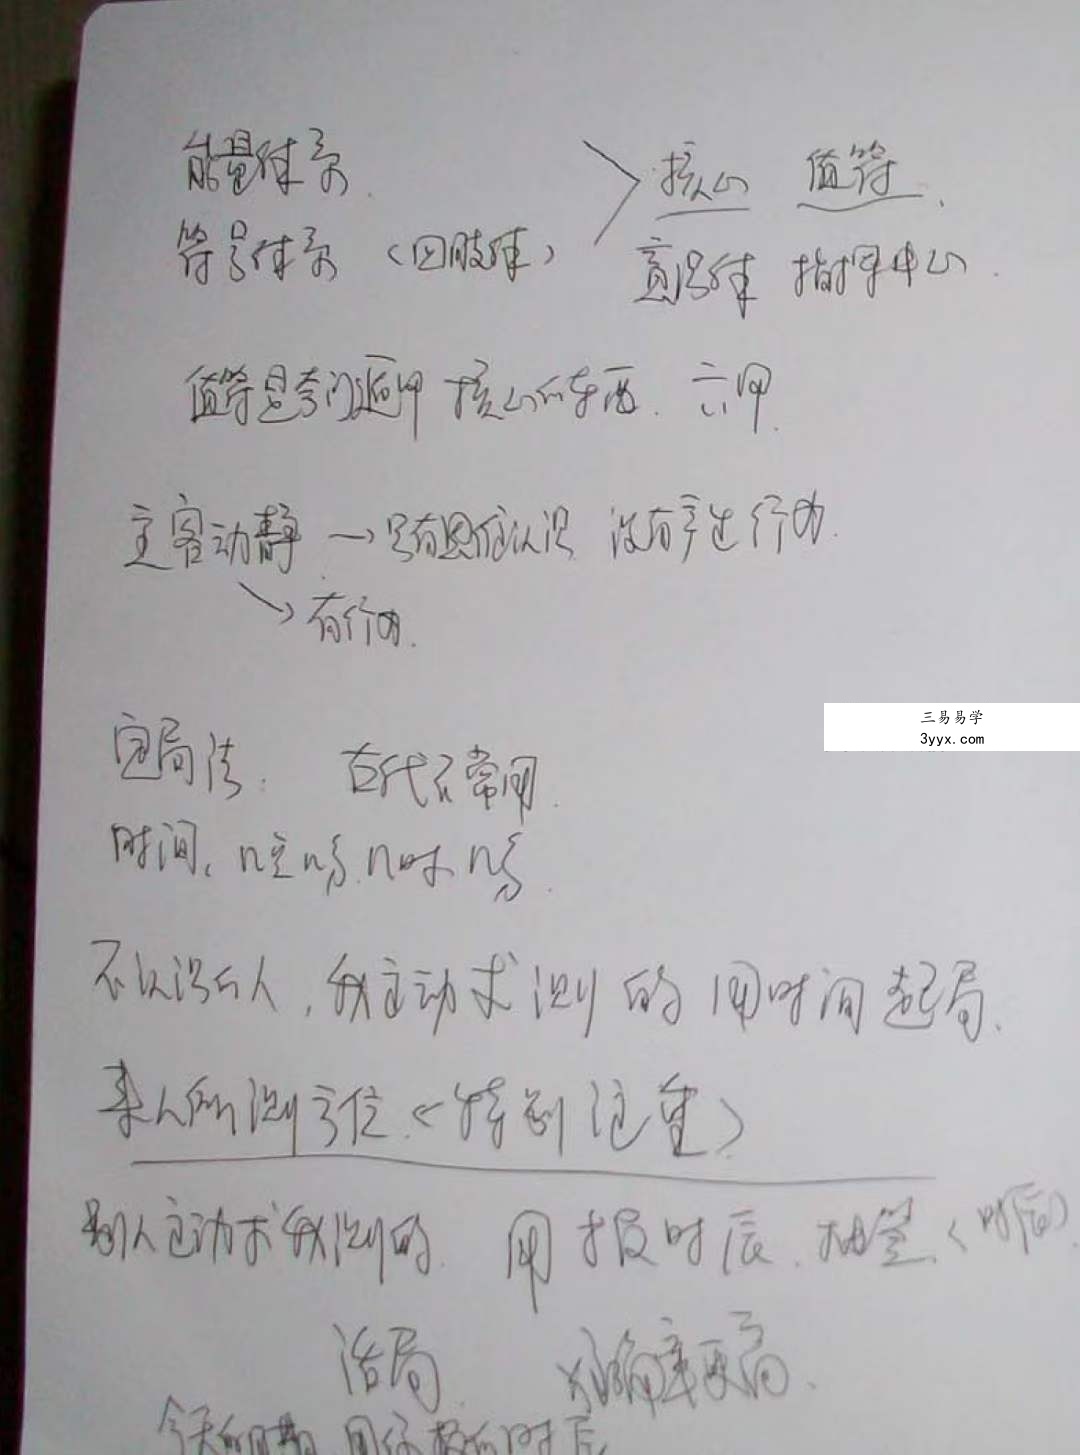 能量体系 > 核心 值符.
符号体系 (四肢体) 意识体 指挥中心.
值符是奇门遁甲 核心的东西. 六甲.
主客动静 → 只有思维认识 没有产生行为.
→ 有行为.
定局法: 古代不常用.
时间,
不认识的人, 我主动求测的 用时间起局.
来人所测方位 (特别注重)
别人主动求我测的. 用报时辰. 抽签. (时辰)
活局. 准确率更高.
今天的日期 用你报的时辰
三易易学
3yyx.com